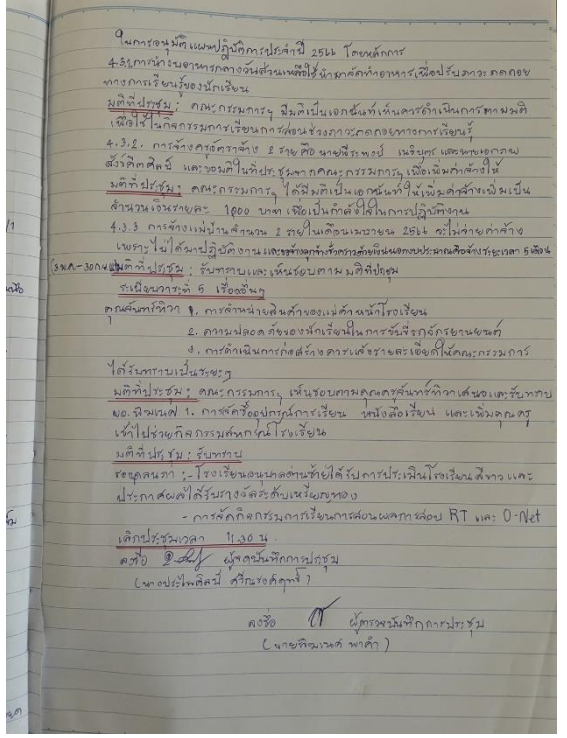 ในการอนุมัติแผนปฏิบัติการประจำปี 2566 โดยหลักการ
4.3.1 การนำงบอาหารกลางวันส่วนเหลือใช้นำมาจัดทำอาหารเพื่อปรับภาวะถดถอย
ทางการเรียนรู้ของนักเรียน
มติที่ประชุม : คณะกรรมการฯ มีมติเป็นเอกฉันท์เห็นควรดำเนินการตามมติ
เพื่อใช้ในกิจกรรมการเรียนการสอนช่วงภาวะถดถอยทางการเรียนรู้
4.3.2. การจ้างครูอัตราจ้าง 2 รายคือนายพีระพงษ์ และนายเอกภพ
สังวัคีตศิลป์ และขอมติในที่ประชุมจากคณะกรรมการฯ เพื่อเพิ่มค่าจ้างให้
มติที่ประชุม : คณะกรรมการฯ ได้มีมติเป็นเอกฉันท์ให้เพิ่มค่าจ้างเพิ่มเป็น
จำนวนเงินรายละ 1,000 บาท เพื่อเป็นกำลังใจในการปฏิบัติงาน
4.3.3 การจ้างแม่บ้านจำนวน 2 รายในเดือนเมษายน 2566 จะไม่จ่ายค่าจ้าง
เพราะไม่ได้มาปฏิบัติงานและขอจ้างลูกจ้างชั่วคราวด้วยเงินนอกงบประมาณคือจ้างระยะเวลา 5 เดือน
มติที่ประชุม : รับทราบและเห็นชอบตามมติที่ประชุม
ระเบียบวาระที่ 5 เรื่องอื่นๆ
คุณจันทร์ทิวา 1. การจำหน่ายสินค้าของแม่ค้าหน้าโรงเรียน
2. ความปลอดภัยของนักเรียนในการขับขี่รถจักรยานยนต์
3. การดำเนินการก่อสร้างควรแจ้งรายละเอียดให้คณะกรรมการ
ได้รับทราบเป็นระยะๆ
มติที่ประชุม : คณะกรรมการฯ เห็นชอบตามคุณครูจันทร์ทิวาเสนอและรับทราบ
ผอ.พิฆเนศ 1. การจัดซื้ออุปกรณ์การเรียน หนังสือเรียน และเพิ่มคุณครู
เข้าไปช่วยกิจกรรมสหกรณ์โรงเรียน
มติที่ประชุม : รับทราบ
รองดลนภา :- โรงเรียนอนุบาลด่านซ้ายได้รับการประเมินโรงเรียนสีขาว และ
ประกาศผลได้รับรางวัลระดับเหรียญทอง
- การจัดกิจกรรมการเรียนการสอนผลการสอบ RT และ O-Net
เลิกประชุมเวลา 11.30 น.
ลงชื่อ ผู้จดบันทึกการประชุม
(นางประไพศิลป์)
ลงชื่อ ผู้ตรวจบันทึกการประชุม
(นายพิฆเนศ พาคำ)